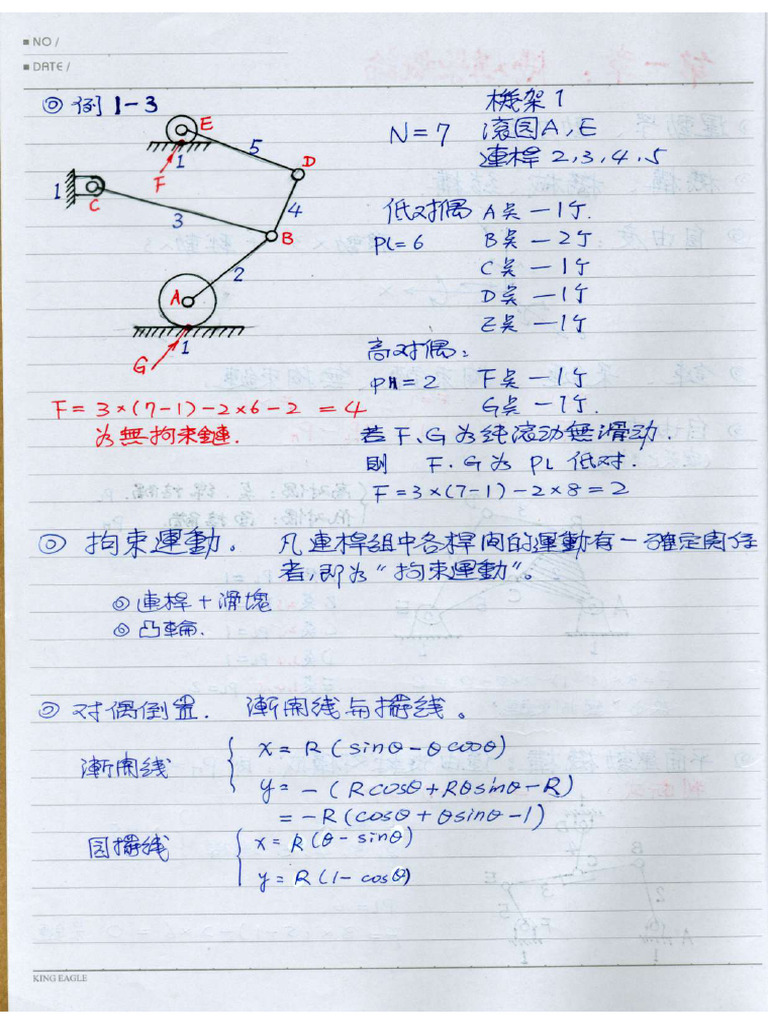 ■ NO /
■ DATE /
◎ 例 1-3
機架 1
N = 7 滾図 A, E
連桿 2, 3, 4, 5
E
5
D
1
F
1
C
3
4
B
2
A
1
G
低对偶 A 奌 — 1 个.
PL = 6 B 奌 — 2 个
C 奌 — 1 个
D 奌 — 1 个
E 奌 — 1 个
高对偶:
PH = 2 F 奌 — 1 个
G 奌 — 1 个.
F = 3×(7-1)-2×6-2 = 4
為無拘束鏈.
若 F、G 為純滾动無滑动.
则 F. G 為 PL 低对.
F = 3×(7-1)-2×8 = 2
◎ 拘束運動。 凡連桿組中各桿间的運動有一確定関係
者,即為"拘束運動"。
◎ 連桿 + 滑塊
◎ 凸輪.
◎ 对偶倒置. 漸開线与擺线。
漸開线 { x = R (sinθ - θcosθ)
y = - (Rcosθ + Rθsinθ - R)
= -R (cosθ + θsinθ - 1)
図擺线 { x = R (θ - sinθ)
y = R (1 - cosθ)
KING EAGLE